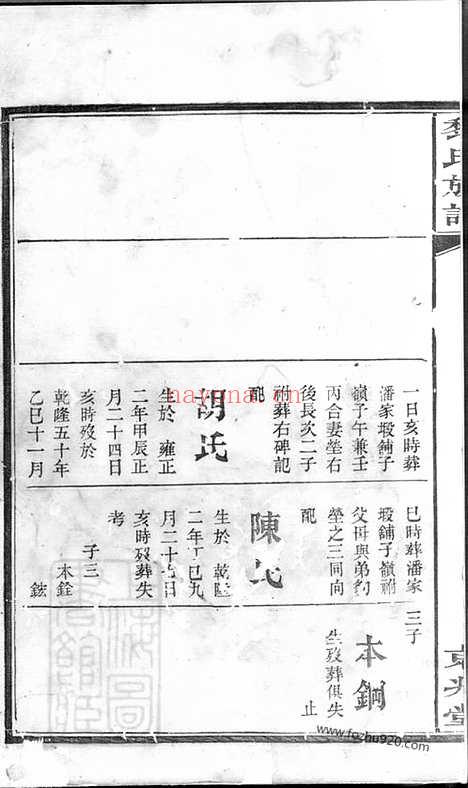 氏族譜
一日亥時葬
潘家塅舖子
嶺子午兼壬
丙合妻塋右
後長次二子
祔葬右碑記
配
胡氏
生於 雍正
二年甲辰正
月二十四日
亥時歿於
乾隆五十年
乙巳十一月
巳時葬潘家
塅舖子嶺祔
父母與弟約
塋之三同向
配
陳氏
生於 乾隆
二年丁巳九
月二十七日
亥時歿葬失
考
子三
本銓
鋐
三子
本鋼
生歿葬俱失
止
堂
nayona.cn
www.fozhu920.com